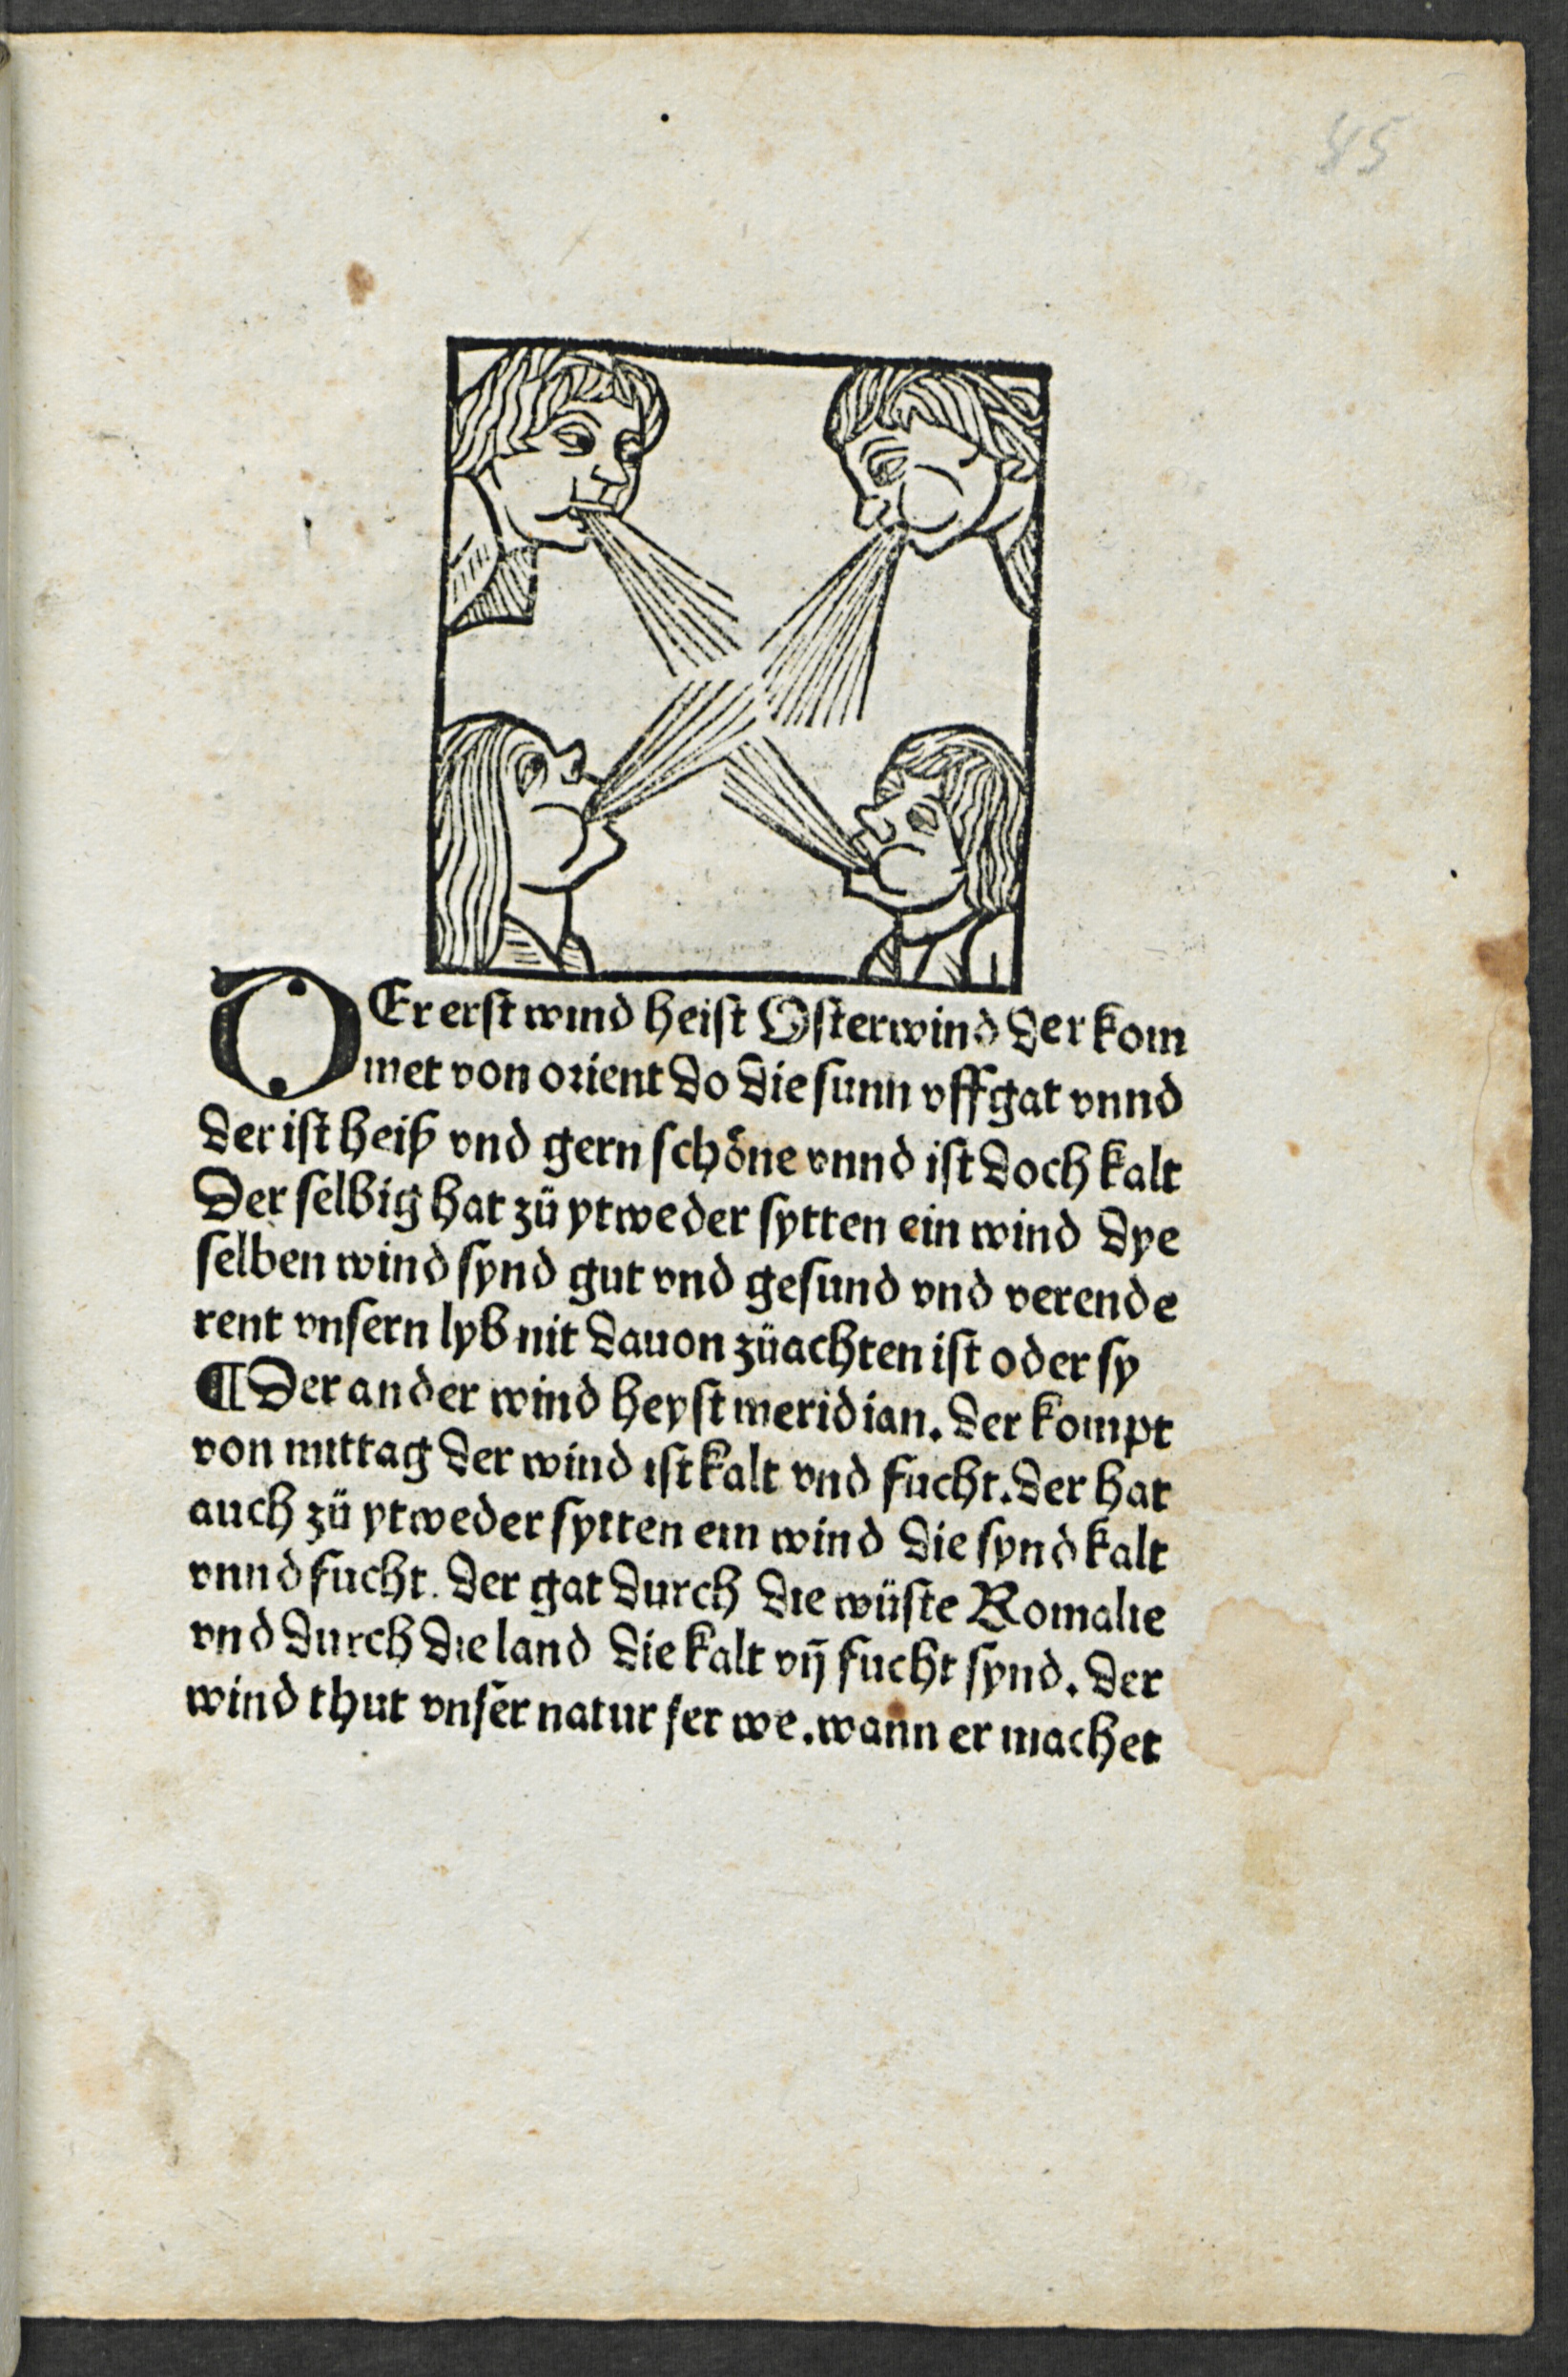 85
DEr erst wind heist Osterwind der kom
met von orient do die sunn vffgat vnnd
der ist heiß vnd gern schöne vnnd ist doch kalt
Der selbig hat zü ytweder sytten ein wind dye
selben wind synd gut vnd gesund vnd verende
rent vnsern lyb nit dauon züachten ist oder sy
¶ Der ander wind heyst meridian. der kompt
von mittag der wind ist kalt vnd fucht. der hat
auch zü ytweder sytten ein wind die synd kalt
vnnd fucht. der gat durch die wüste Romalie
vnd durch die land die kalt vn̄ fucht synd. der
wind thut vnser natur ser we. wann er machet